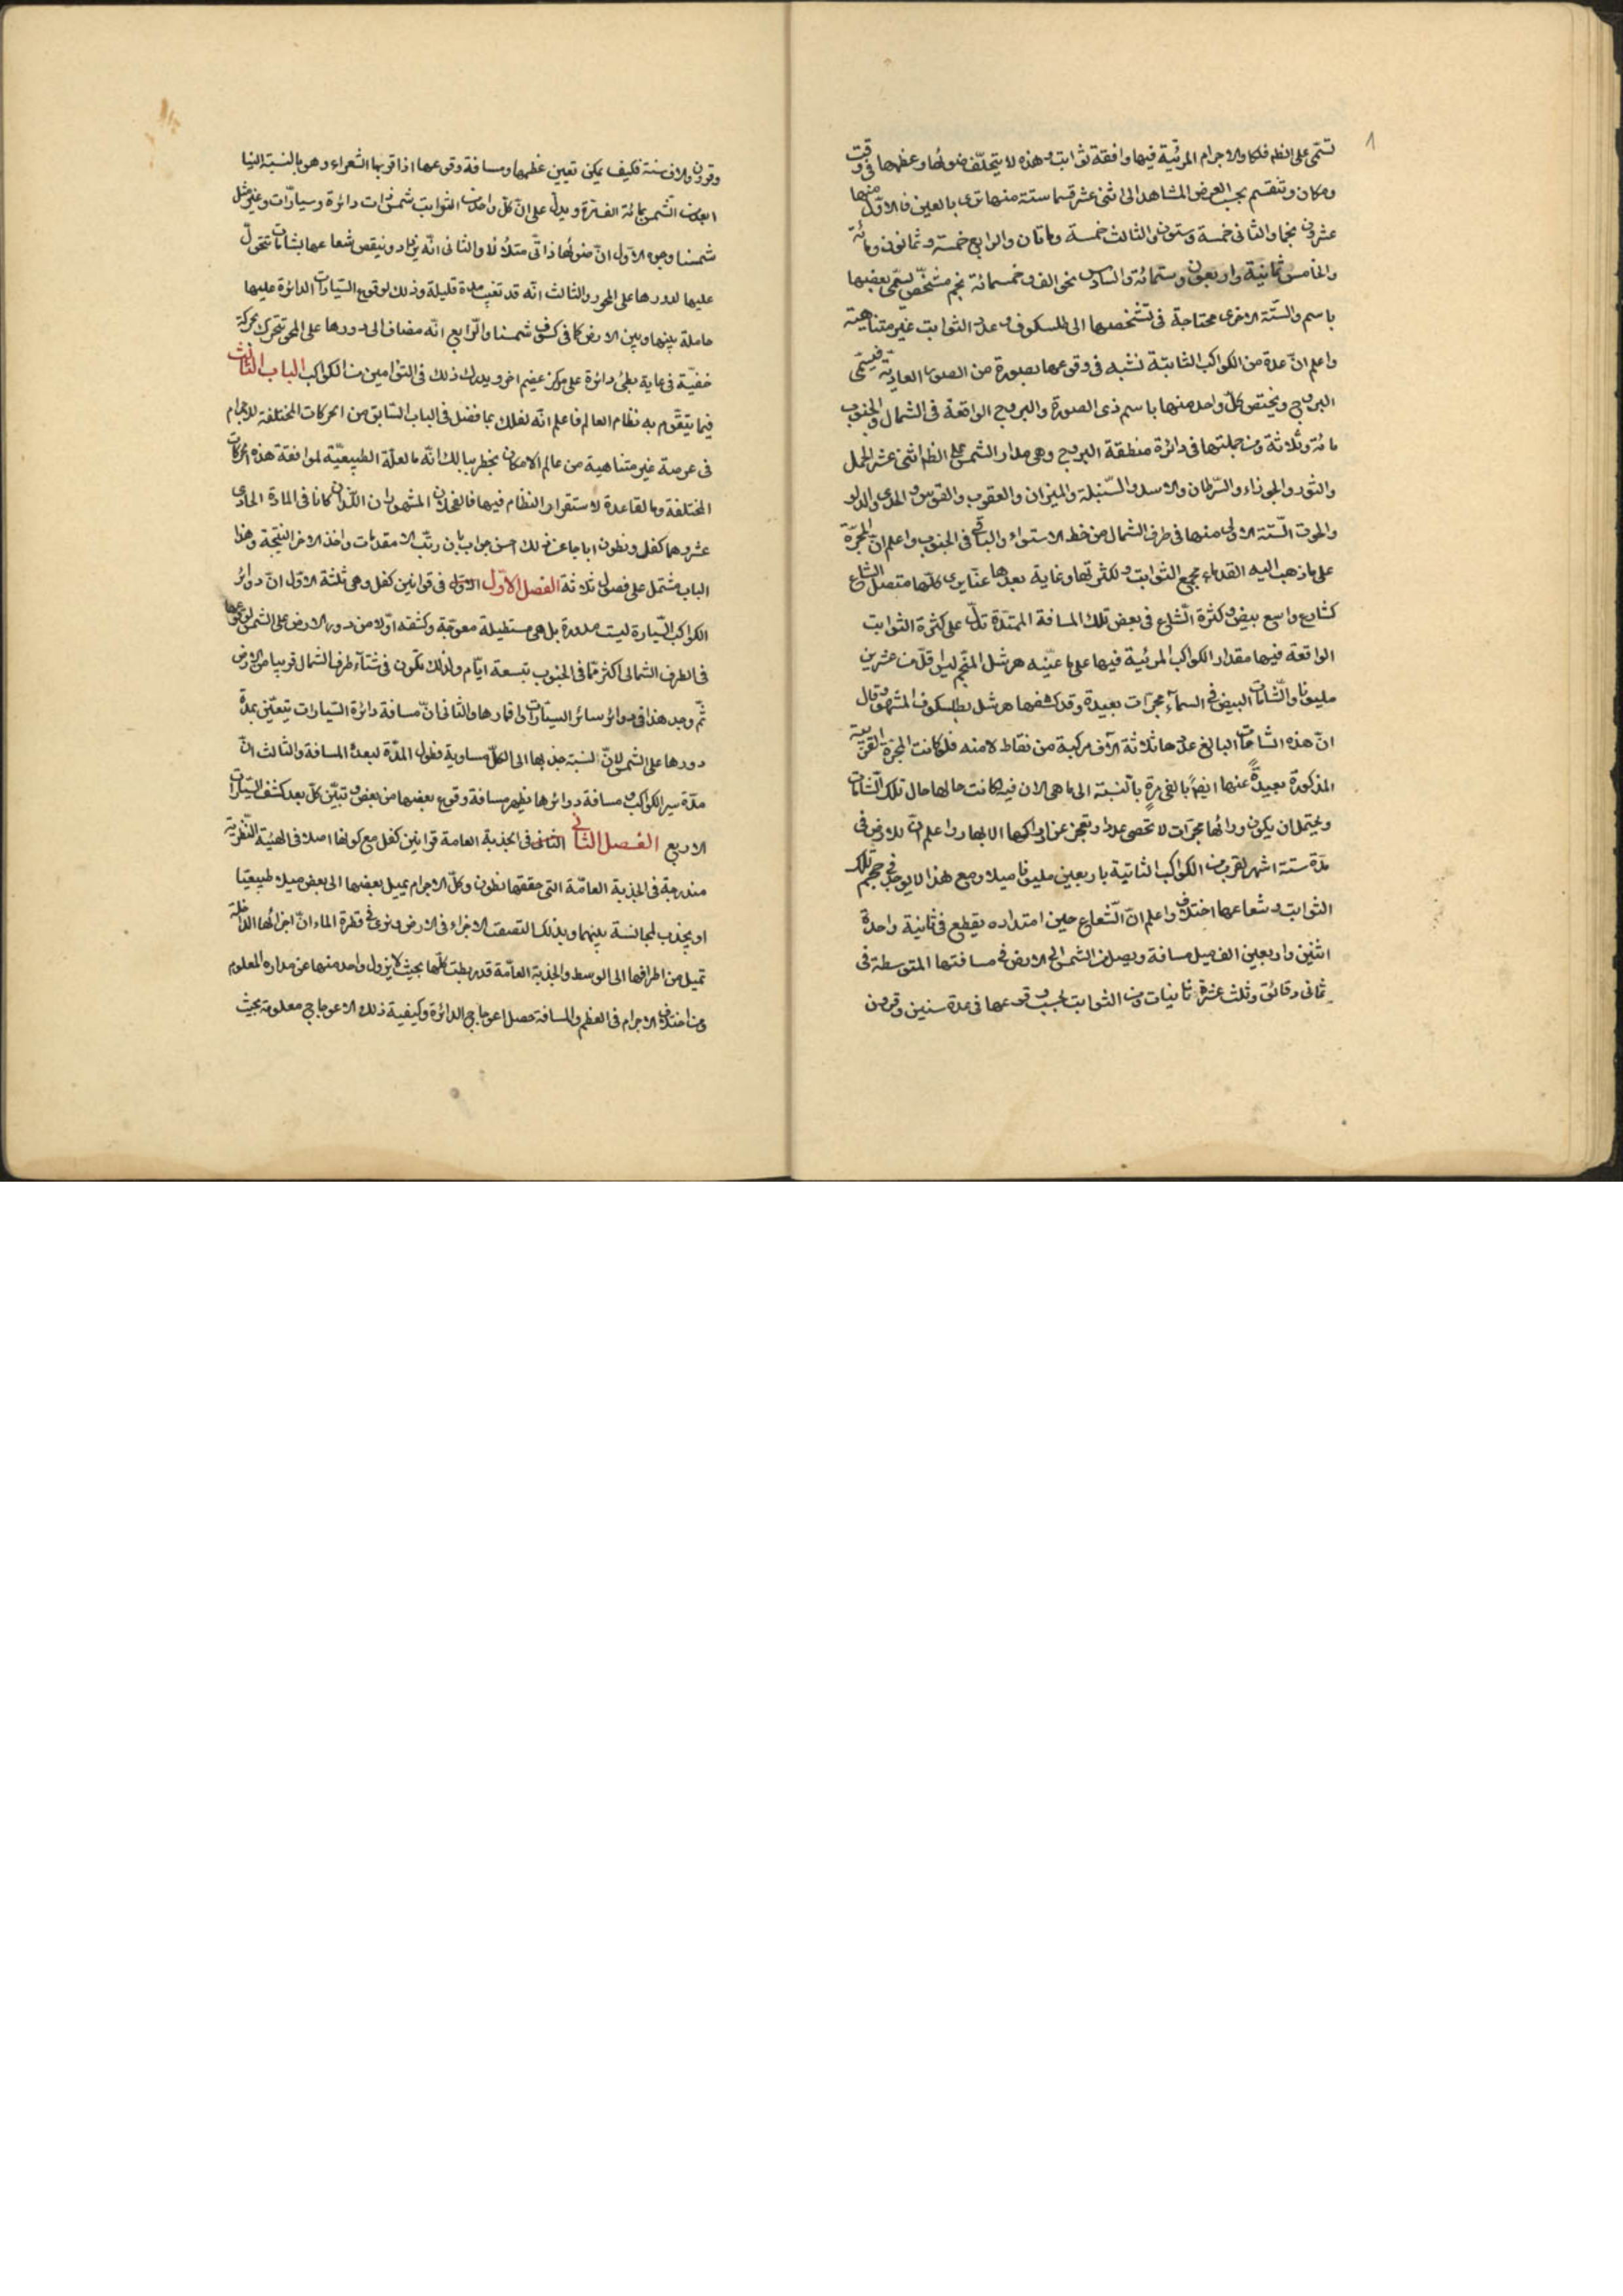 تسمى على النظم فلكا والاجرام المرئية فيها وافقة ثوابت وهذه لا يتخلف ضوئها وعظمها فى وقت
ومكان وتنقسم بحسب العرض المشاهد الى اثنى عشر قسما ستة منها ترى بالعين فالاول منها
عشرون نجما والثانى خمسة وستون والثالث خمسة ومائتان والرابع خمسة وثمانون ومائة
والخامس ثمانية واربعون وستمائة والسادس نحو الف وخمسمائة نجم مشخص تسمى بعضها
باسم والستة الاخرى محتاجة فى تشخصها الى تلسكوف وعدة الثوابت غير متناهية
واعلم ان عدة من الكواكب الثابتة تشبه فى وقوعها بصورة من الصور العادية فيسمى
البروج ويختص كل واحد منها باسم ذى الصورة والبروج الواقعة فى الشمال والجنوب
مائة وثلاثة ومن جملتها فى دائرة منطقة البروج وهى مدار الشمس على النظم اثنى عشر الحمل
والثور والجوزاء والسرطان والاسد والسنبلة والميزان والعقرب والقوس والجدى والدلو
والحوت الستة الاولى منها فى طرف الشمال من خط الاستواء والباقى فى الجنوب واعلم ان المجرة
على ما ذهب اليه القدماء مجمع الثوابت ولكثرتها وغاية بعدها عنا يرى كلها متصل الشعاع
كشارع واسع بيض وكثرة الشعاع فى بعض تلك المسافة الممتدة تدل على كثرة الثوابت
الواقعة فيها مقدار الكواكب المرئية فيها على ما عينه هرشل المنجم ليس اقل من عشرين
مليونا والشامات البيض فى السماء مجرات بعيدة وقد كشفها هرشل بطلسكوف المشهور وقال
ان هذه الشامات البالغ عدها ثلاثة آلاف مركبة من نقاط لامنه فلو كانت المجرة القريبة
المذكورة بعيدة عنها ايضا بالف مرة بالنسبة الى ما هى الان فيه كانت حالها حال تلك الشامات
ويحتمل ان يكون ورائها مجرات لا تحصى عددا وتعجز عن ادراكها الابصار واعلم ان للارض فى
مدة ستة اشهر تقرب من الكواكب الثابتة باربعين مليونا ميلا ومع هذا لا يوجد فى حجم تلك
الثوابت وشعاعها اختلاف واعلم ان الشعاع حين امتداده يقطع فى ثانية واحدة
اثنين واربعين الف ميل مسافة ويصل من الشمس الى الارض فى مسافتها المتوسطة فى
ثمانى دقائق وثلث عشرة ثانيات ومن الثوابت بحسب وقوعها فى مدة سنين وقرون
وقرون والاف سنة فكيف يمكن تعيين عظمها ومسافة وقوعها اذ اقربها الشعراء وهو بالنسبة الينا
ابعد من الشمس بمائة الف مرة ويدل على ان كل واحد من الثوابت شمس ذات دائرة وسيارات وغيره مثل
شمسنا وجوه الاول ان ضوئها ذاتى متلألأ والثانى انه يزاد وينقص شعاعها بشامات تتحول
عليها لدورها على المحور والثالث انه قد تغيب مدة قليلة وذلك لوقوع السيارات الدائرة عليها
حاملة بينها وبين الارض كما فى كسوف شمسنا والرابع انه مضاف الى دورها على المحور تتحرك بحركة
خفية فى غاية بطئ دائرة على مركز عظيم اخر ويدرك ذلك فى التوامين من الكواكب الباب الثالث
فيما يتقوم به نظام العالم فاعلم انه لعلك بما فصل فى الباب السابق من الحركات المختلفة للاجرام
فى عرصة غير متناهية من عالم الامكان يخطر ببالك انه ما العلة الطبيعية لموافقة هذه الحركات
المختلفة وما القاعدة لاستقرار النظام فيها فالفحلان المشهوران اللذان كانا فى المادة الحادى
عشر وهما كفل ونطون اجابا عن ذلك احسن جواب بان رتب الاول مقدمات واخذ الاخر النتيجة وهذا
الباب مشتمل على فصول ثلاثة الفصل الاول فى قوانين كفل وهى ثلثة الاول ان دوائر
الكواكب السيارة ليست مدورة بل هى مستطيلة معوجة وكشفه اولا من دور الارض على الشمس لوقوعها
فى الطرف الشمالى اكثر مما فى الجنوب بتسعة ايام ولذلك تكون فى شتاء طرف الشمال قريبا من الارض
ثم وجد هذا فى دوائر سائر السيارات واقمارها والثانى ان مسافة دائرة السيارات تتعين بمدة
دورها على الشمس لان نسبة جذبها الى الكل مساوية فطول المدة لبعد المسافة والثالث ان
مدة سير الكواكب ومسافة دوائرها يظهر مسافة وقوع بعضها من بعض وتبين كل بعد كشف السيارات
الاربع الفصل الثانى فى الجذبة العامة قوانين كفل مع كونها اصلا فى الهيئة النظرية
مندرجة فى الجذبة العامة التى حققها نطون وكل الاجرام يميل بعضها الى بعض ميلا طبيعيا
او يجذب لمجانسة بينهما وبذلك التصقت الاجزاء فى الارض ونرى فى قطرة الماء ان اجزائها الداخلة
تميل من اطرافها الى الوسط والجذبة العامة قد ربطت كلها بحيث لا يزول واحد منها عن مداره المعلوم
ومن اختلاف الاجرام فى العظم والمسافة حصل اعوجاج الدائرة وكيفية ذلك الاعوجاج معلومة بحيث